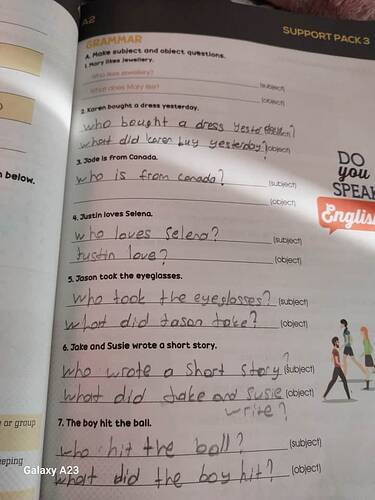 A2
SUPPORT PACK 3
GRAMMAR
A. Make subject and object questions.
1. Mary likes jewellery.
Who likes jewellery? (subject)
What does Mary like? (object)
2. Karen bought a dress yesterday.
who bought a dress yesterday?
what did karen buy yesterday? (object)
3. Jade is from Canada.
who is from canada? (subject)
(object)
4. Justin loves Selena.
who loves Selena? (subject)
Justin love? (object)
5. Jason took the eyeglasses.
who took the eyeglasses? (subject)
what did Jason take? (object)
6. Jake and Susie wrote a short story.
who wrote a short story? (subject)
what did Jake and Susie (object)
write?
7. The boy hit the ball.
who hit the ball? (subject)
what did the boy hit? (object)
n below.
e or group
eeping
DO
you
SPEAK
English
Galaxy A23